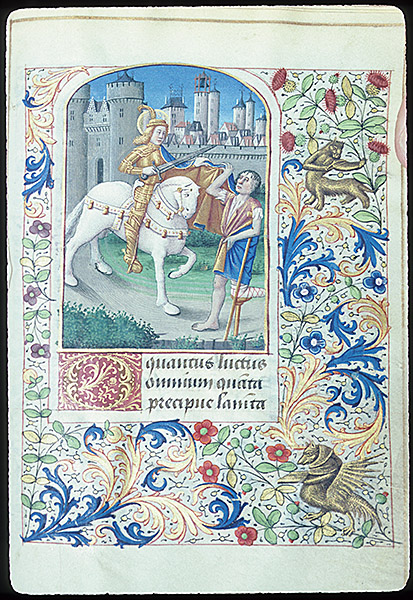 O quantus luctus
omnium quāta
precipue lamēta